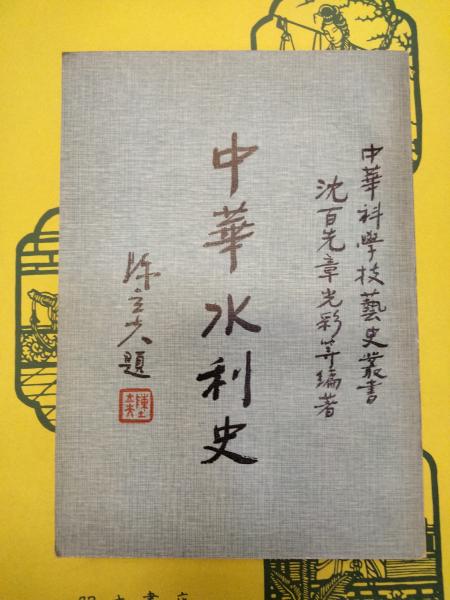 中華科學技藝史叢書
沈百先章光彩等編著
中華水利史
陳立夫題
陳立夫